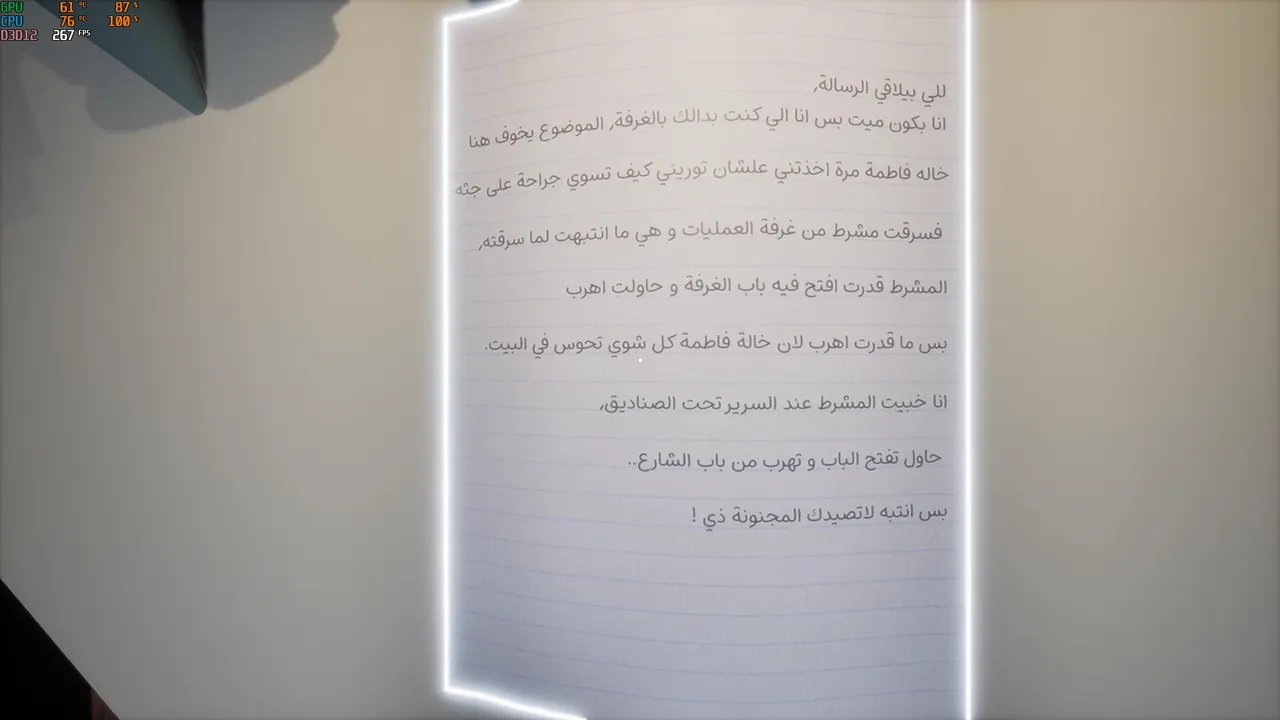 GPU 61 °C 87 %
CPU 76 °C 100 %
D3D12 267 FPS
للي بيلاقي الرسالة,
انا بكون ميت بس انا الي كنت بدالك بالغرفة, الموضوع يخوف هنا
خاله فاطمة مرة اخذتني علشان توريني كيف تسوي جراحة على جثه
فسرقت مشرط من غرفة العمليات و هي ما انتبهت لما سرقته,
المشرط قدرت افتح فيه باب الغرفة و حاولت اهرب
بس ما قدرت اهرب لان خالة فاطمة كل شوي تحوس في البيت.
انا خبيت المشرط عند السرير تحت الصناديق,
حاول تفتح الباب و تهرب من باب الشارع..
بس انتبه لاتصيدك المجنونة ذي !